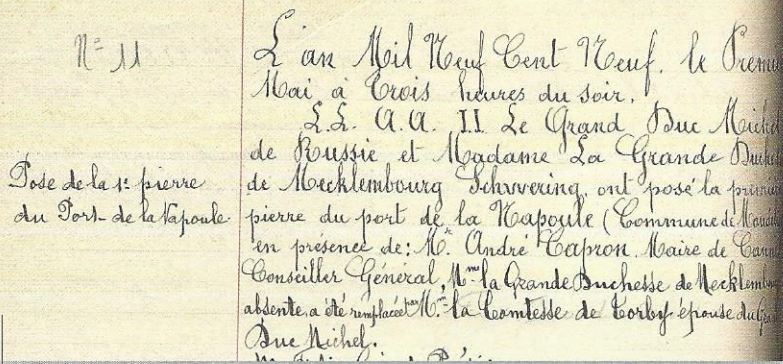 N° 11
Pose de la 1e pierre
du Port de la Napoule
L'an Mil Neuf Cent Neuf, le Premi
Mai, à Trois heures du soir,
L.L. A.A. I.I. Le Grand Duc Michel
de Russie et Madame La Grande Duche
de Mecklembourg Schwering, ont posé la premi
pierre du port de la Napoule (Commune de Mand
en présence de: Mr André Capron, Maire de Cann
Conseiller Général, Mme la Grande Duchesse de Mecklembou
absente, a été remplacée par Mme la Comtesse de Torby épouse du Gra
Duc Michel.